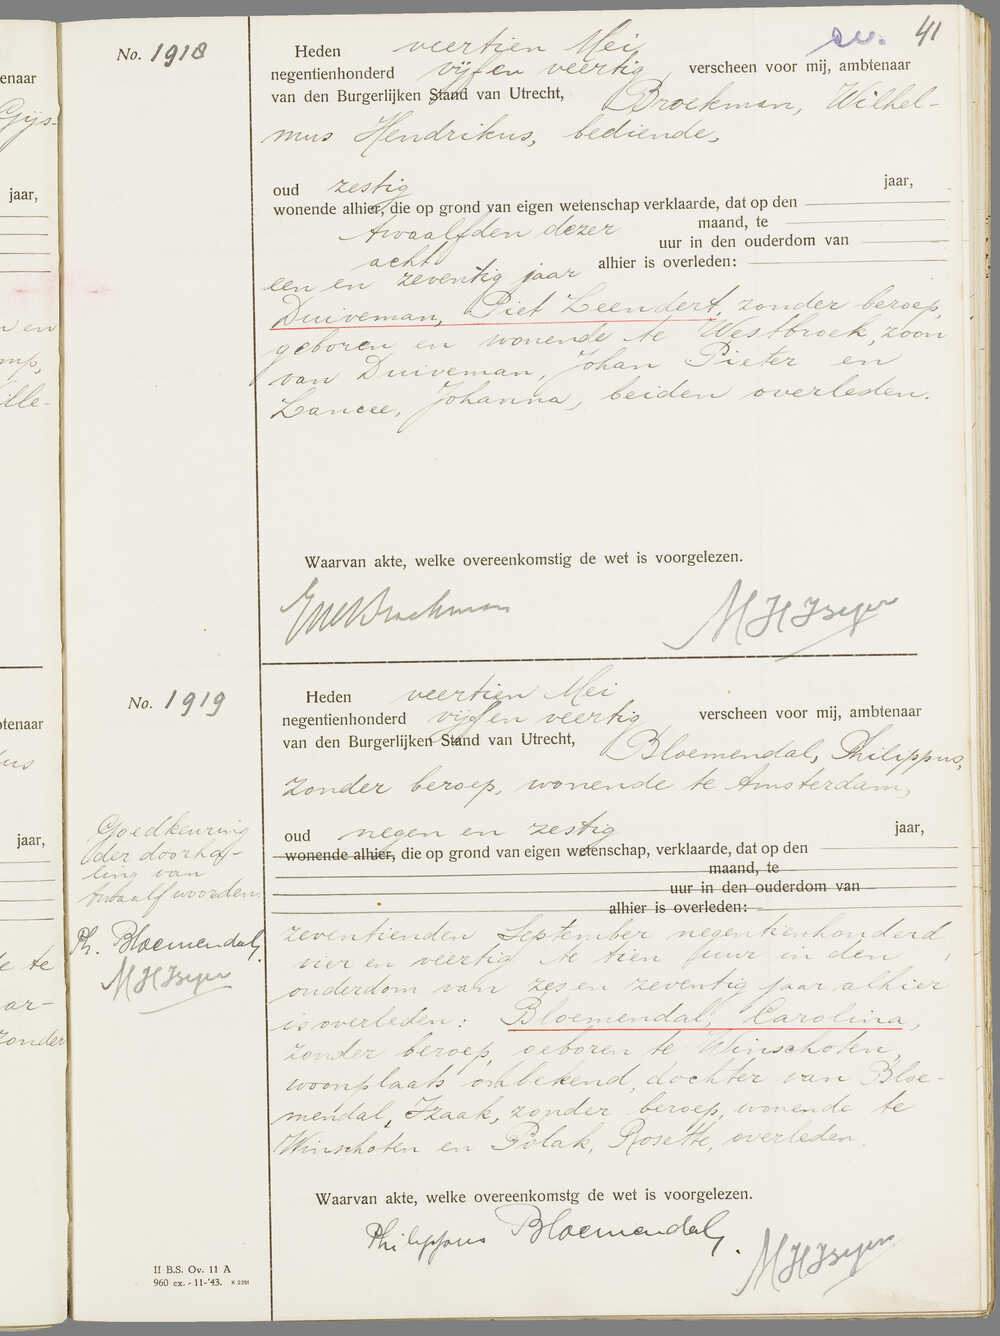 enaar
Gijs-
jaar,
en
ille-
tenaar
jaar,
te
ar-
zonder
41
No. 1918
Heden veertien Mei
negentienhonderd vijf en veertig, verscheen voor mij, ambtenaar
van den Burgerlijken Stand van Utrecht, Broekman, Wilhel-
mus Hendrikus, bediende,
oud zestig jaar,
wonende alhier, die op grond van eigen wetenschap verklaarde, dat op den
twaalfden dezer maand, te
acht uur in den ouderdom van
een en zeventig jaar alhier is overleden:
Duiveman, Piet Leendert, zonder beroep,
geboren en wonende te Westbroek, zoon
van Duiveman, Johan Pieter en
Lancee, Johanna, beiden overleden.
Waarvan akte, welke overeenkomstig de wet is voorgelezen.
No. 1919
Heden veertien Mei
negentienhonderd vijf en veertig, verscheen voor mij, ambtenaar
van den Burgerlijken Stand van Utrecht, Bloemendal, Philippus,
zonder beroep, wonende te Amsterdam,
oud negen en zestig jaar,
wonende alhier, die op grond van eigen wetenschap, verklaarde, dat op den
maand, te
uur in den ouderdom van
alhier is overleden:
zeventienden September negentienhonderd
vier en veertig te tien uur in den
ouderdom van zes en zeventig jaar alhier
is overleden: Bloemendal, Carolina,
zonder beroep, geboren te Winschoten,
woonplaats onbekend, dochter van Bloe-
mendal, Izaak, zonder beroep, wonende te
Winschoten en Polak, Rosette, overleden.
Goedkeuring
der doorha-
ling van
twaalf woorden.
Ph. Bloemendal
Waarvan akte, welke overeenkomstg de wet is voorgelezen.
Philippus Bloemendal
II B.S. Ov. 11 A
960 ex. - 11-'43. K 2351